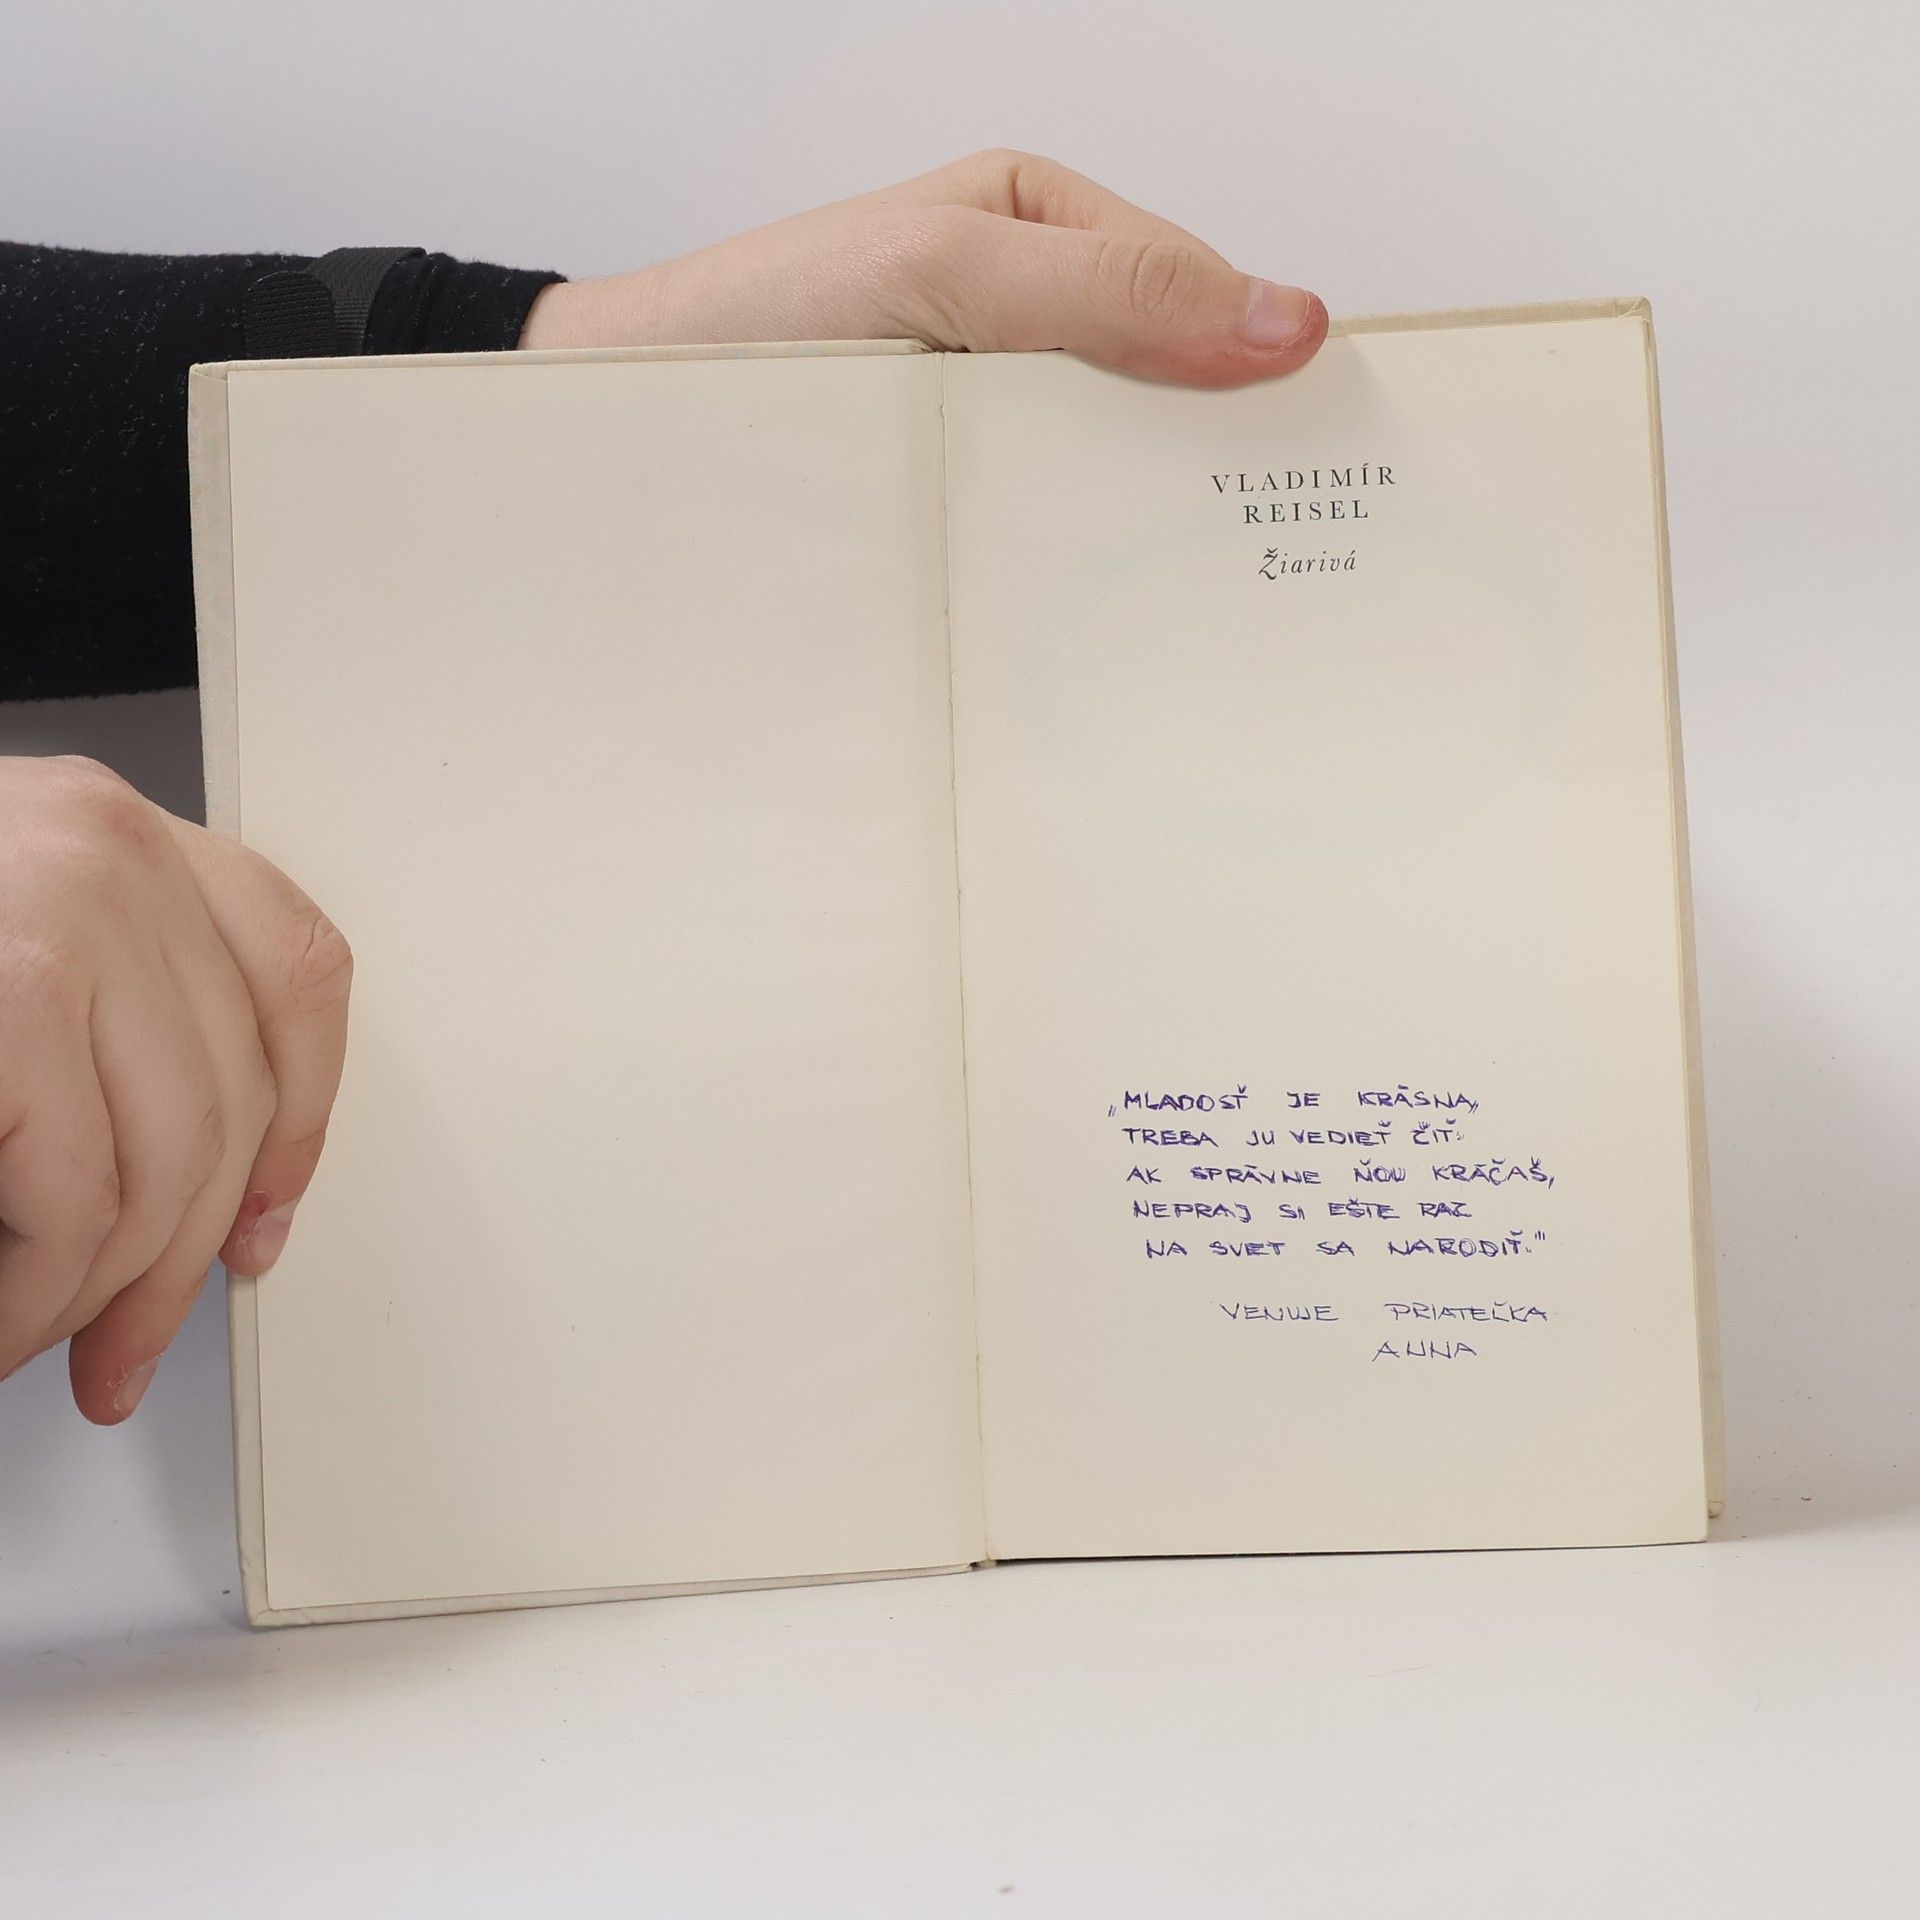 VLADIMÍR
REISEL
Žiarivá
„MLADOSŤ JE KRÁSNA,
TREBA JU VEDIEŤ ČIŤ.
AK SPRÁVNE ŇOU KRÁČAŠ,
NEPRAJ SI EŠTE RAZ
NA SVET SA NARODIŤ."
VENUJE PRIATEĽKA
ANNA